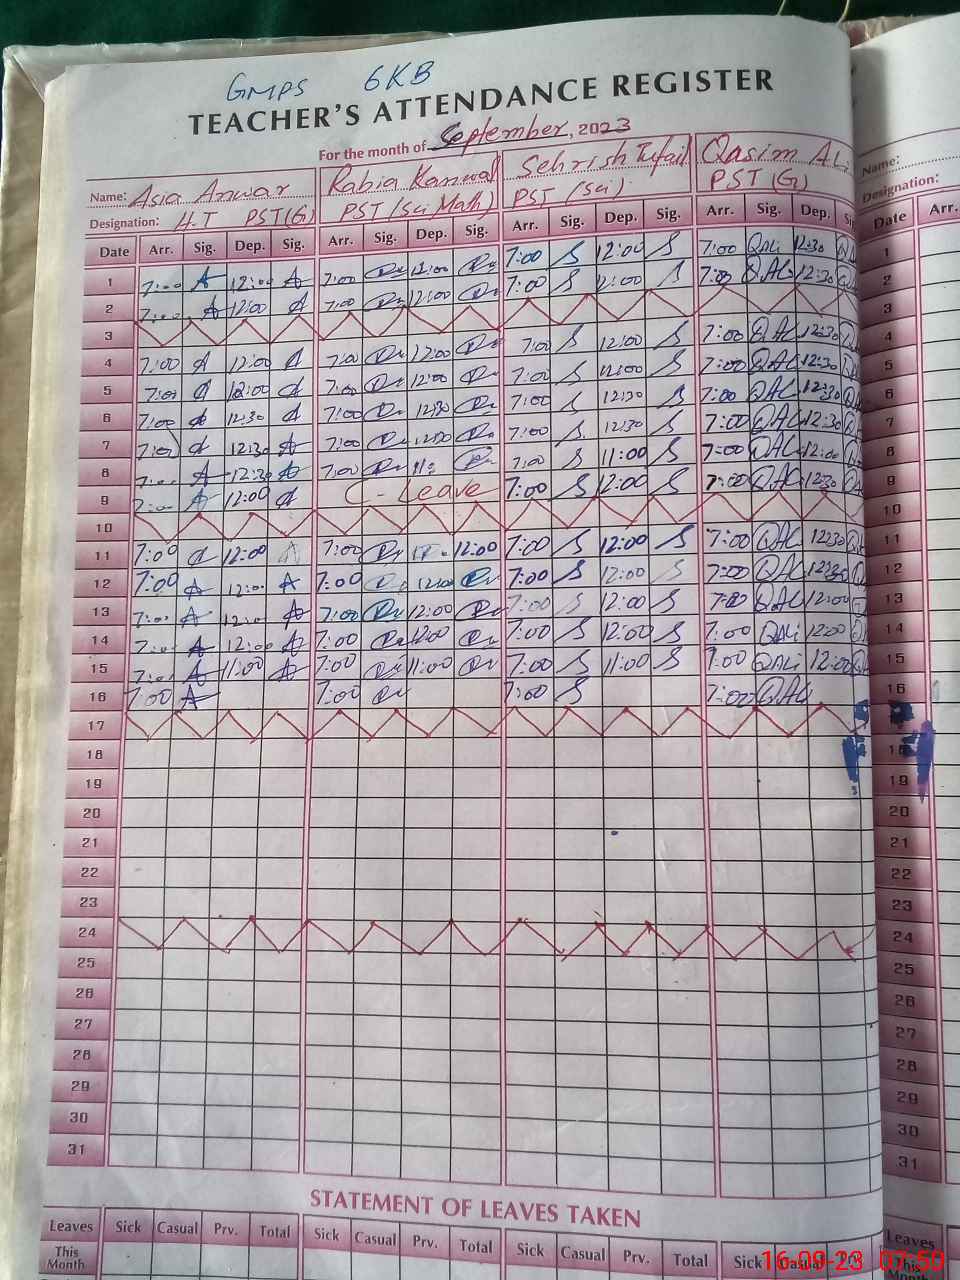 GMPS 6KB
TEACHER'S ATTENDANCE REGISTER
For the month of September, 2023
Name: Asia Anwar Rabia Kanwal Sehrish Tufail Qasim ALi Name:
Designation: H.T PST(G) PST (Sci Math) PST (Sci) PST (G) Designation:
Date Arr. Sig. Dep. Sig. Arr. Sig. Dep. Sig. Arr. Sig. Dep. Sig. Arr. Sig. Dep. Date Arr.
1 7:00 A 12:00 A 7:00 12:00 7:00 S 12:00 S 7:00 QALi 12:30 1
2 7:00 A 12:00 7:00 12:00 7:00 S 12:00 S 7:00 QALi 12:30 2
3 3
4 7:00 12:00 7:00 12:00 7:00 S 12:00 S 7:00 QALi 12:30 4
5 7:00 12:00 7:00 12:00 7:00 S 12:00 S 7:00 QALi 12:30 5
6 7:00 12:30 7:00 12:30 7:00 S 12:30 S 7:00 QALi 12:30 6
7 7:00 12:30 A 7:00 12:30 7:00 S 12:30 S 7:00 QALi 12:30 7
8 7:00 A 12:30 A 7:00 7:00 S 11:00 S 7:00 QALi 12:00 8
9 7:00 A 12:00 C-Leave 7:00 S 12:00 S 7:00 QALi 12:30 9
10 10
11 7:00 12:00 A 7:00 12:00 7:00 S 12:00 S 7:00 QALi 12:30 11
12 7:00 A 12:00 A 7:00 12:00 7:00 S 12:00 S 7:00 QALi 12:30 12
13 7:00 A 12:00 A 7:00 12:00 7:00 S 12:00 S 7:00 QALi 12:00 13
14 7:00 A 12:00 A 7:00 12:00 7:00 S 12:00 S 7:00 QALi 12:00 14
15 7:00 A 11:00 A 7:00 11:00 7:00 S 11:00 S 7:00 QALi 12:00 15
16 7:00 A 7:00 7:00 S 7:00 QALi 16
17
18 18
19 19
20 20
21 21
22 22
23 23
24 24
25 25
26 26
27 27
28 28
29 29
30 30
31 31
STATEMENT OF LEAVES TAKEN
Leaves Sick Casual Prv. Total Sick Casual Prv. Total Sick Casual Prv. Total Sick Casual Prv. Leaves
This Month This
16-09-23 07:50